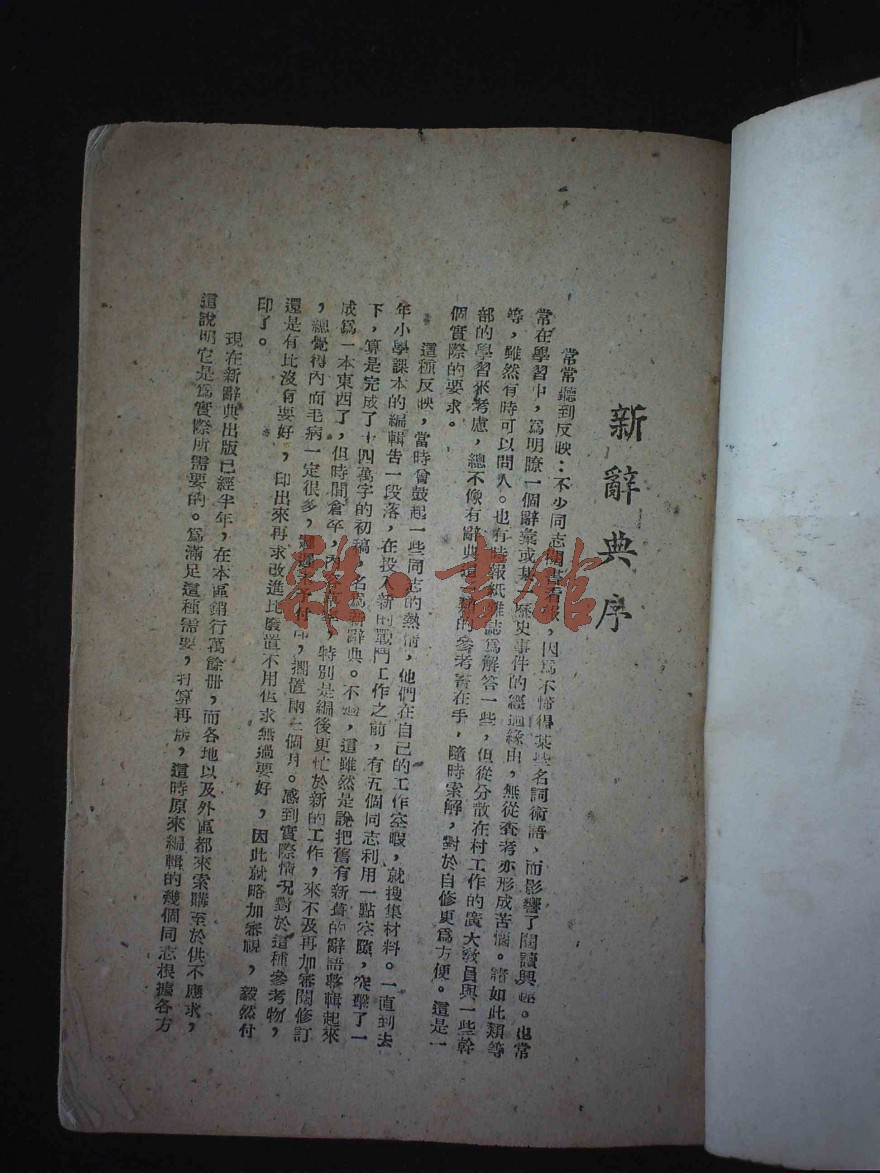 新辭典序
常常聽到反映：不少同志閱書看報，因爲不懂得某些名詞術語，而影響了閱讀興趣。也常
常在學習中，爲明瞭一個辭彙或某一歷史事件的經過緣由，無從查考亦形成苦惱。諸如此類等
等，雖然有時可以問人。也有時報紙雜誌爲解答一些，但從分散在村工作的廣大教員與一些幹
部的學習來考慮，總不像有辭典這類的參考書在手，隨時索解，對於自修更爲方便。這是一
個實際的要求。
這種反映，當時曾鼓起一些同志的熱情，他們在自己的工作空暇，就搜集材料。一直到去
年小學課本的編輯告一段落，在投入新的戰鬥工作之前，有五個同志利用一點空隙，突擊了一
下，算是完成了十四萬字的初稿，名爲新辭典。不過，這雖然是說把舊有新葺的辭語整輯起來
成爲一本東西了，但時間倉卒，內，特別是編後更忙於新的工作，來不及再加審閱修訂
，總覺得內面毛病一定很多，付印，擱置兩三個月。感到實際情況對於這種參考物，
還是有比沒有要好，印出來再求改進比廢置不用但求無過要好，因此就略加審視，毅然付
印了。
現在新辭典出版已經半年，在本區銷行萬餘冊，而各地以及外區都來索購至於供不應求，
這說明它是爲實際所需要的。爲滿足這種需要，打算再版，這時原來編輯的幾個同志根據各方
雜·書館